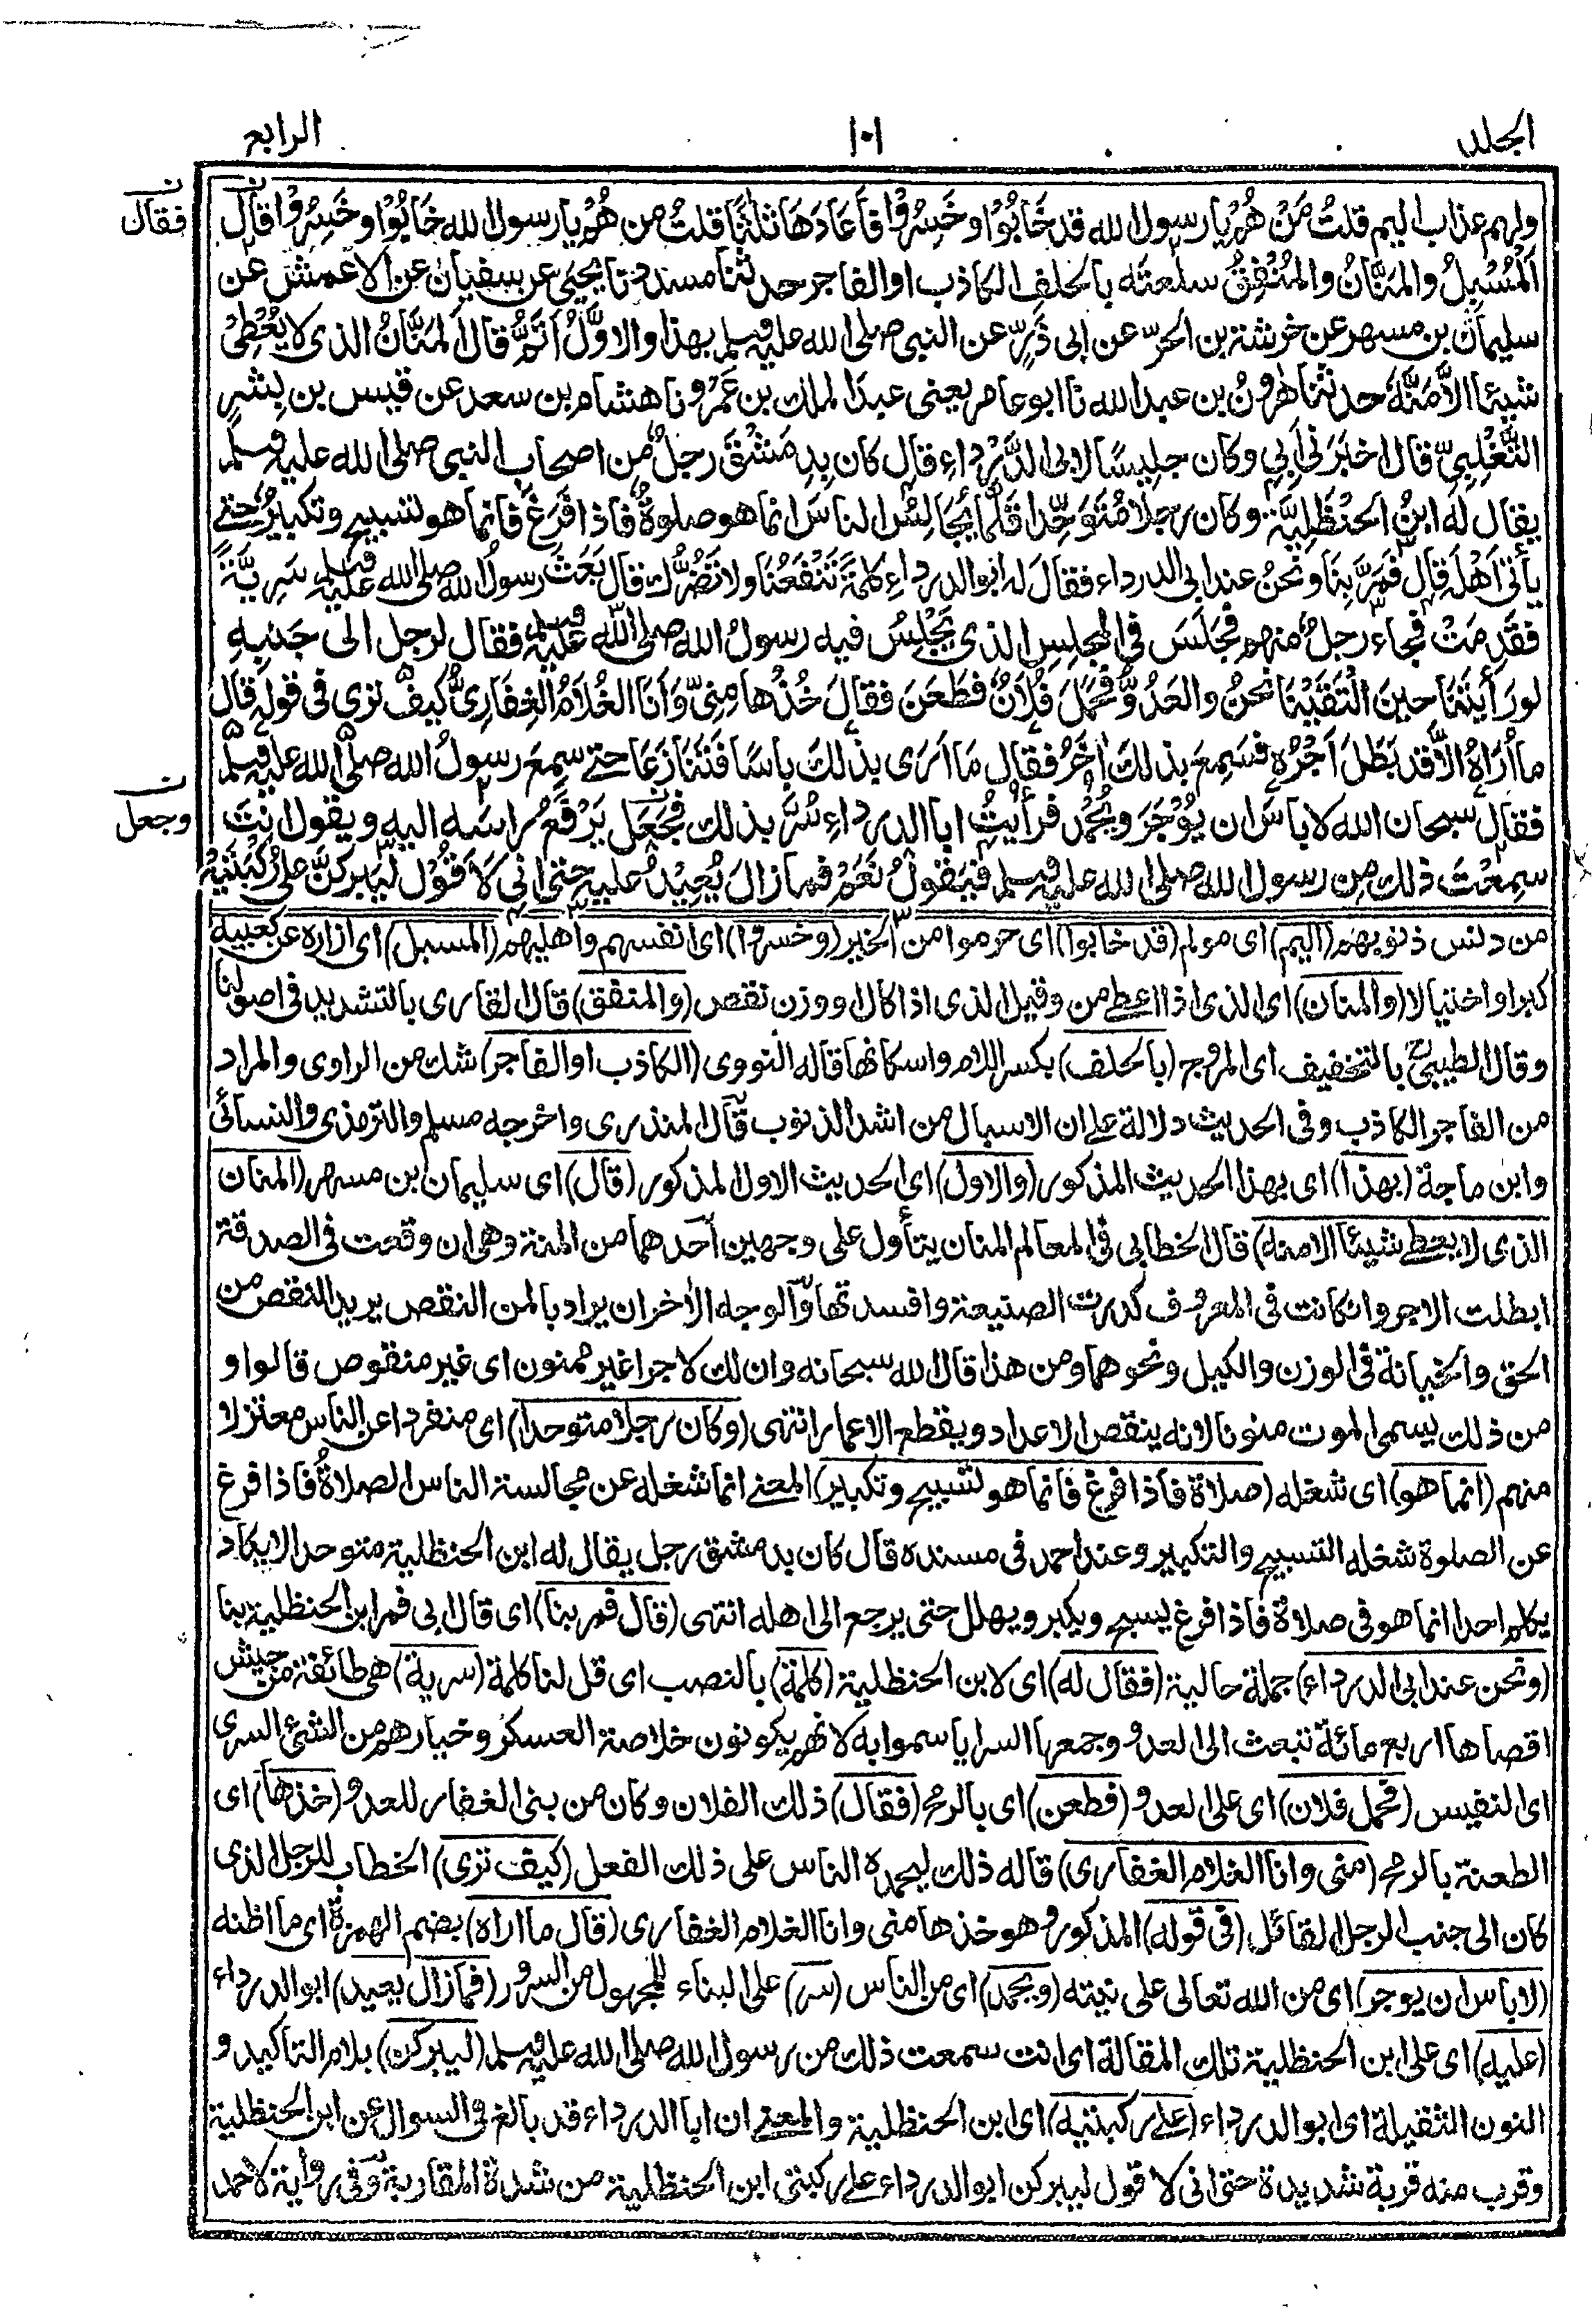 الجلد
١٠١
الرابع
ولهم عذاب اليم قلتُ مَنْ هُمْ يا رسول الله قد خَابُوْا وخَسِرُوْا فأَعَادَهَا ثلثًا قلتُ من هُمْ يا رسول الله خَابُوْا وخَسِرُوْا قال
فقال
اَلْمُسْبِلُ والمَنَّانُ والمُنْفِقُ سلعتَه بالحلف الكاذب او الفاجر حدثنا مسدد نا يحيى عن سفيان عن الاعمش عن
سليمان بن مسهر عن خرشة بن الحرّ عن ابى ذَرٍّ عن النبى صلى الله عليه وسلم بهذا والاوَّلُ اَتَمُّ قال المَنَّانُ الذى لا يُعْطِىْ
شيئا الاَّ مَنَّهُ حدثنا هٰرونُ بن عبد الله نا ابو عامر يعنى عبدَ الملك بن عَمْرٍو نا هشام بن سعد عن قيس بن بِشْرٍ
التَّغْلِبِىّ قال اخبَرَنى اَبِى وكان جلِيسًا لابى الدَّرْدَاءِ قال كان بدِمَشْقَ رجلٌ من اصحاب النبى صلى الله عليه وسلم
يقال لَهُ ابنُ الحنْظَلِيَّة وكان رجلا مُتَوَحِّدا قَلَّمَا يُجَالِسُ الناسَ انما هو صلوةٌ فاذا فَرَغَ فانما هو تسبيح وتكبيرٌ حتے
يأتىَ اَهْلَه قال فَمَرَّ بِنَا ونحنُ عند ابى الدرداء فقالَ له ابو الدرداءِ كلمةً تَنْفَعُنَا ولا تَضُرُّك قال بَعَثَ رسولُ الله صلى الله عليه وسلم سَرِيَّةً
فقَدِمَتْ فجاء رجلٌ منهم فجَلَسَ فى المجلِسِ الذى يَجْلِسُ فيه رسولُ الله صلى الله عليه وسلم فقال لرجل الى جَنْبِهٖ
لو رَأَيْتَنَا حينَ الْتَقَيْنَا نحنُ والعَدُوُّ فحَمَلَ فُلَانٌ فطَعَنَ فقالَ خُذْها مِنِّىْ وَاَنَا الغُلَامُ الغِفَارِىُّ كيفَ ترٰى فى قولِهٖ قال
ما اُرَاهُ الاَّ قد بَطَلَ اَجْرُهٗ فسَمِعَ بذلك اٰخَرُ فقال مَا اَرٰى بذلك باسًا فتَنَازَعَا حتے سمِعَ رسولُ الله صلى الله عليه وسلم
فقال سبحان الله لا باسَ ان يُوْجَرَ ويُحْمَدَ فرأيتُ ابا الدرداءِ سُرَّ بذلك فجَعَل يَرْفَعُ راسَه اليهِ ويقول انتَ
وجعل
سمِعْتَ ذلك مِن رسول الله صلى الله عليه وسلم فيقولُ نَعَمْ فما زالَ يُعِيْدُ عليهِ حتى انى لَاَقُوْل لَيَبركَنَّ على رُكْبَتَيْهِ
من دنس ذنوبهم (اليم) اى مولم (قد خابوا) اى حرموا من الخير (وخسروا) اى انفسهم واهليهم (المسبل) اى ازاره عن كعبيه
كبرا واختيالا (والمنان) اى الذى اذا اعطے من وقيل الذى اذا كال او وزن نقص (والمنفق) قال القارى بالتشديد فى اصولنا
وقال الطيبى بالتخفيف اى المروج (بالحلف) بكسر اللام واسكانها قاله النووى (الكاذب او الفاجر) شك من الراوى والمراد
من الفاجر الكاذب وفى الحديث دلالة على ان الاسبال من اشد الذنوب قال المنذرى واخرجه مسلم والترمذى والنسائى
وابن ماجة (بهذا) اى بهذا الحديث المذكور (والاول) اى الحديث الاول المذكور (قال) اى سليمان بن مسهر (المنان
الذى لا يعطے شيئا الا منه) قال الخطابى فى المعالم المنان يتأول على وجهين احدهما من المنة وهى ان وقعت فى الصدقة
ابطلت الاجر وان كانت فى المعروف كدرت الصنيعة وافسدتها والوجه الاٰخر ان يراد بالمن النقص يريد النقص من
الحق والخيانة فى الوزن والكيل ونحوهما ومن هذا قال الله سبحانه وان لك لاجرا غير ممنون اى غير منقوص قالوا و
من ذلك يسمى الموت منونا لانه ينقص الاعداد ويقطع الاعمار انتهى (وكان رجلا متوحدا) اى منفردا عن الناس معتزلا
منهم (انما هو) اى شغله (صلاة فاذا فرغ فانما هو تسبيح وتكبير) المعنے انما شغله عن مجالسة الناس الصلاة فاذا فرغ
عن الصلوة شغله التسبيح والتكبير وعند احمد فى مسنده قال كان بدمشق رجل يقال له ابن الحنظلية متوحدا لا يكاد
يكلم احدا انما هو فى صلاة فاذا فرغ يسبح ويكبر ويهلل حتى يرجع الى اهله انتهى (قال فمر بنا) اى قال ابى فمر ابن الحنظلية بنا
(ونحن عند ابى الدرداء) جملة حالية (فقال له) اى لابن الحنظلية (كلمة) بالنصب اى قل لنا كلمة (سرية) هى طائفة من جيش
اقصاها اربع مائة تبعث الى العدو وجمعها السرايا سموا به لانهم يكونون خلاصة العسكر وخيارهم من الشئ السرى
اى النفيس (فحمل فلان) اى على العدو (فطعن) اى بالرمح (فقال) ذلك الفلان وكان من بنى الغفار للعدو (خذها) اى
الطعنة بالرمح (منى وانا الغلام الغفارى) قاله ذلك ليحمده الناس على ذلك الفعل (كيف ترى) الخطاب للرجل الذى
كان الى جنب الرجل القائل (فى قوله) المذكور وهو خذها منى وانا الغلام الغفارى (قال ما اراه) بضم الهمزة اى ما اظنه
(لا باس ان يوجر) اى من الله تعالى على نيته (ويحمد) اى من الناس (سر) على البناء للمجهول من السرور (فما زال يعيد) ابو الدرداء
(عليه) اى على ابن الحنظلية تلك المقالة اى انت سمعت ذلك من رسول الله صلى الله عليه وسلم (ليبركن) بلام التاكيد و
النون الثقيلة اى ابو الدرداء (على ركبتيه) اى ابن الحنظلية والمعنے ان ابا الدرداء قد بالغ فى السوال عن ابن الحنظلية
وقرب منه قربة شديدة حتى انى لاقول ليبركن ابو الدرداء على ركبتى ابن الحنظلية من شدة المقاربة وفى رواية لاحمد